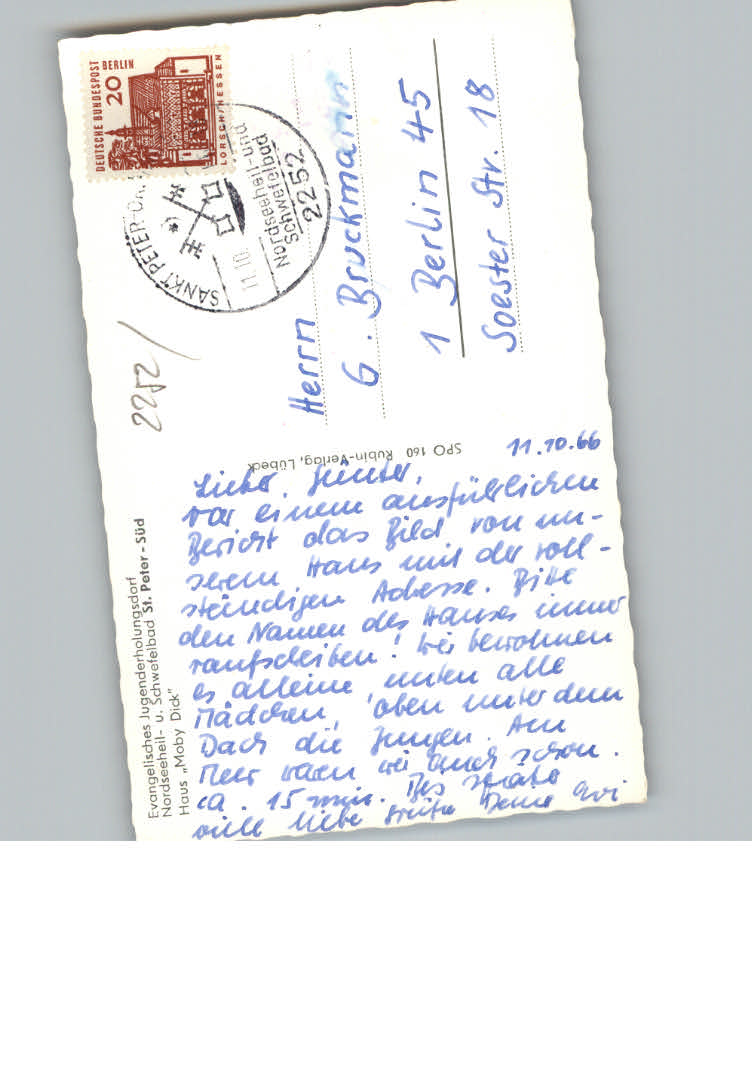 Evangelisches Jugenderholungsdorf
Nordseeheil- u. Schwefelbad St. Peter-Süd
Haus „Moby Dick"
11.10.66
Lieber Günter,
vor einem ausführlichen
Bericht das Bild von un-
serem Haus mit der voll-
ständigen Adresse. Bitte
den Namen des Hauses immer
raufschreiben! Wir bewohnen
es alleine unten alle
Mädchen, oben unter dem
Dach die Jungen. Am
Meer waren wir auch schon.
ca. 15 min. Bis später
viele liebe Grüße Deine
SPO 160 Rubin-Verlag, Lübeck
2252
DEUTSCHE BUNDESPOST BERLIN
20
LORSCH/HESSEN
SANKT PETER-OR
11.10
Nordseeheil-und
Schwefelbad
2252
Herrn
G. Bruckmann
1 Berlin 45
Soester Str. 18